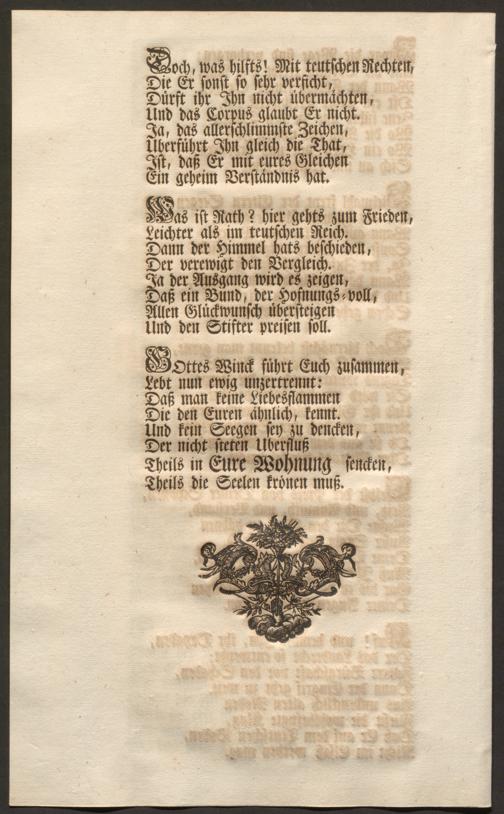 Doch, was hilfts! Mit teutschen Rechten,
Die Er sonst so sehr verficht,
Dürft ihr Ihn nicht übermächten,
Und das Corpus glaubt Er nicht.
Ja, das allerschlimmste Zeichen,
Uberführt Ihn gleich die That,
Ist, daß Er mit eures Gleichen
Ein geheim Verständnis hat.
Was ist Rath? hier gehts zum Frieden,
Leichter als im teutschen Reich.
Dann der Himmel hats beschieden,
Der verewigt den Vergleich.
Ja der Ausgang wird es zeigen,
Daß ein Bund, der Hofnungs-voll,
Allen Glückwunsch übersteigen
Und den Stifter preisen soll.
GOttes Winck führt Euch zusammen,
Lebt nun ewig unzertrennt:
Daß man keine Liebesflammen
Die den Euren ähnlich, kennt.
Und kein Seegen sey zu dencken,
Der nicht steten Uberfluß
Theils in Eure Wohnung sencken,
Theils die Seelen krönen muß.